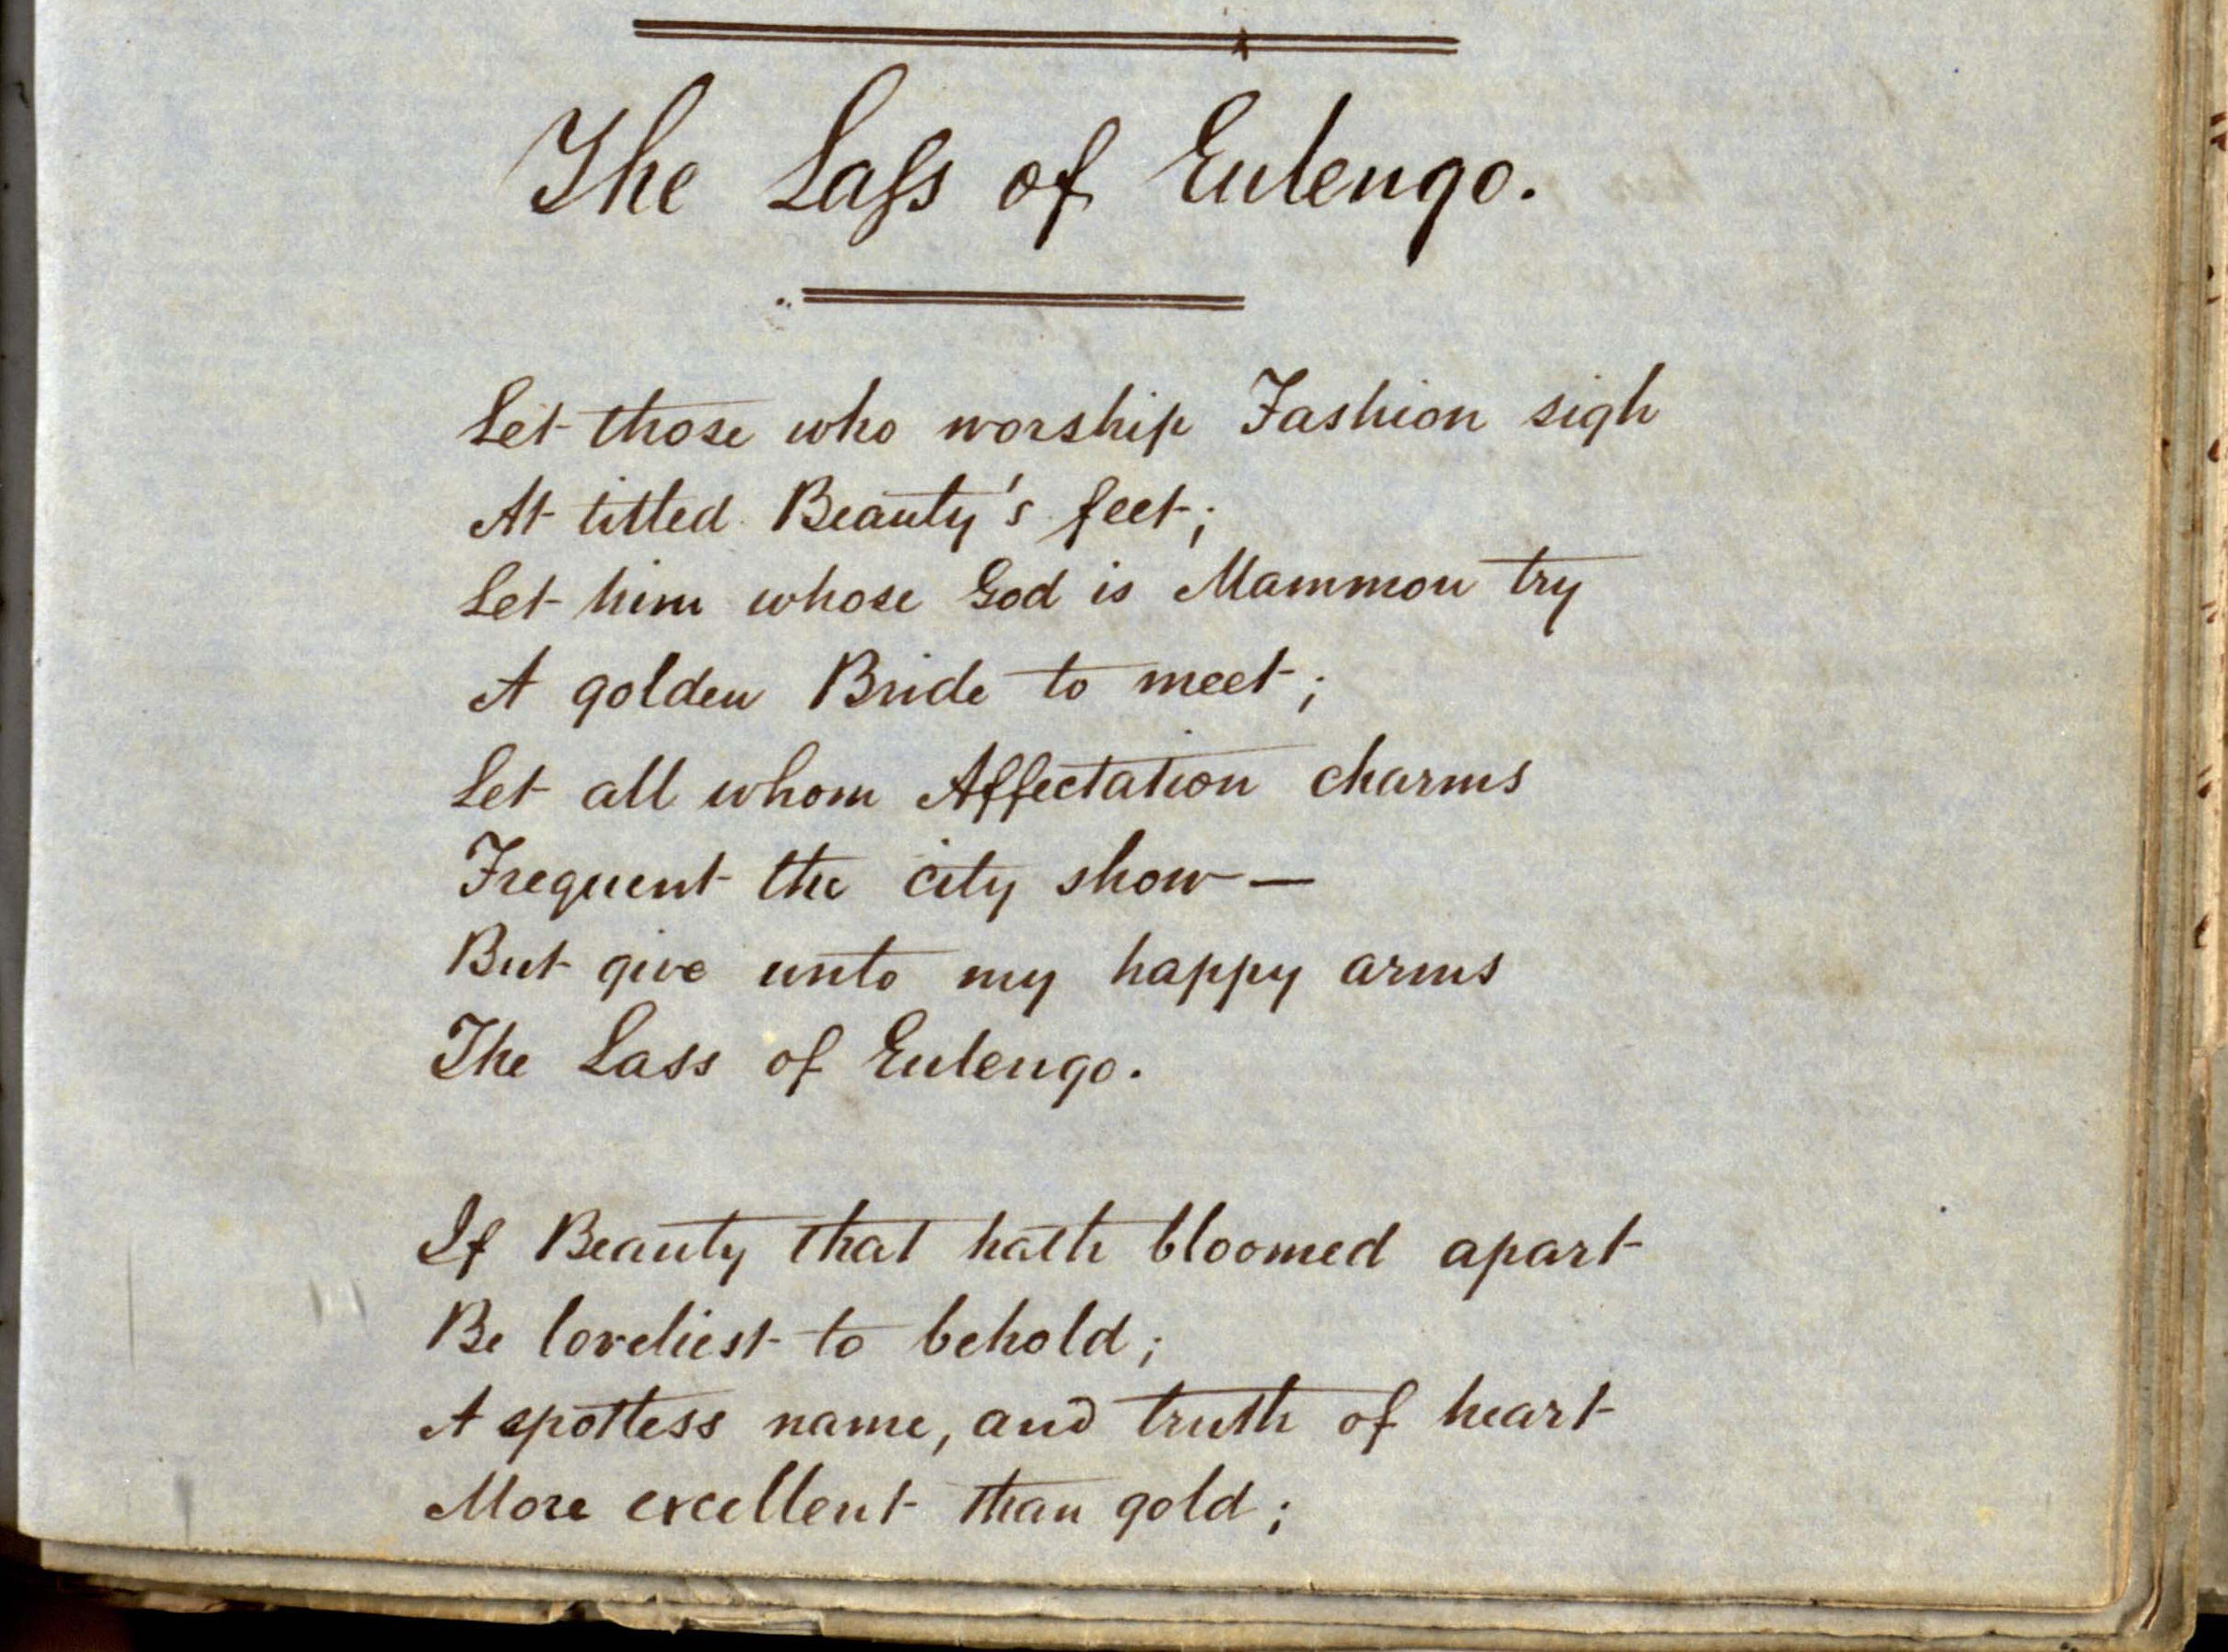 The Laſs of Eulengo.
Let those who worship Fashion sigh
At titled Beauty's feet;
Let him whose God is Mammon try
A golden Bride to meet;
Let all whom Affectation charms
Frequent the city show—
But give unto my happy arms
The Lass of Eulengo.
If Beauty that hath bloomed apart
Be loveliest to behold;
A spotless name, and truth of heart
More excellent than gold;